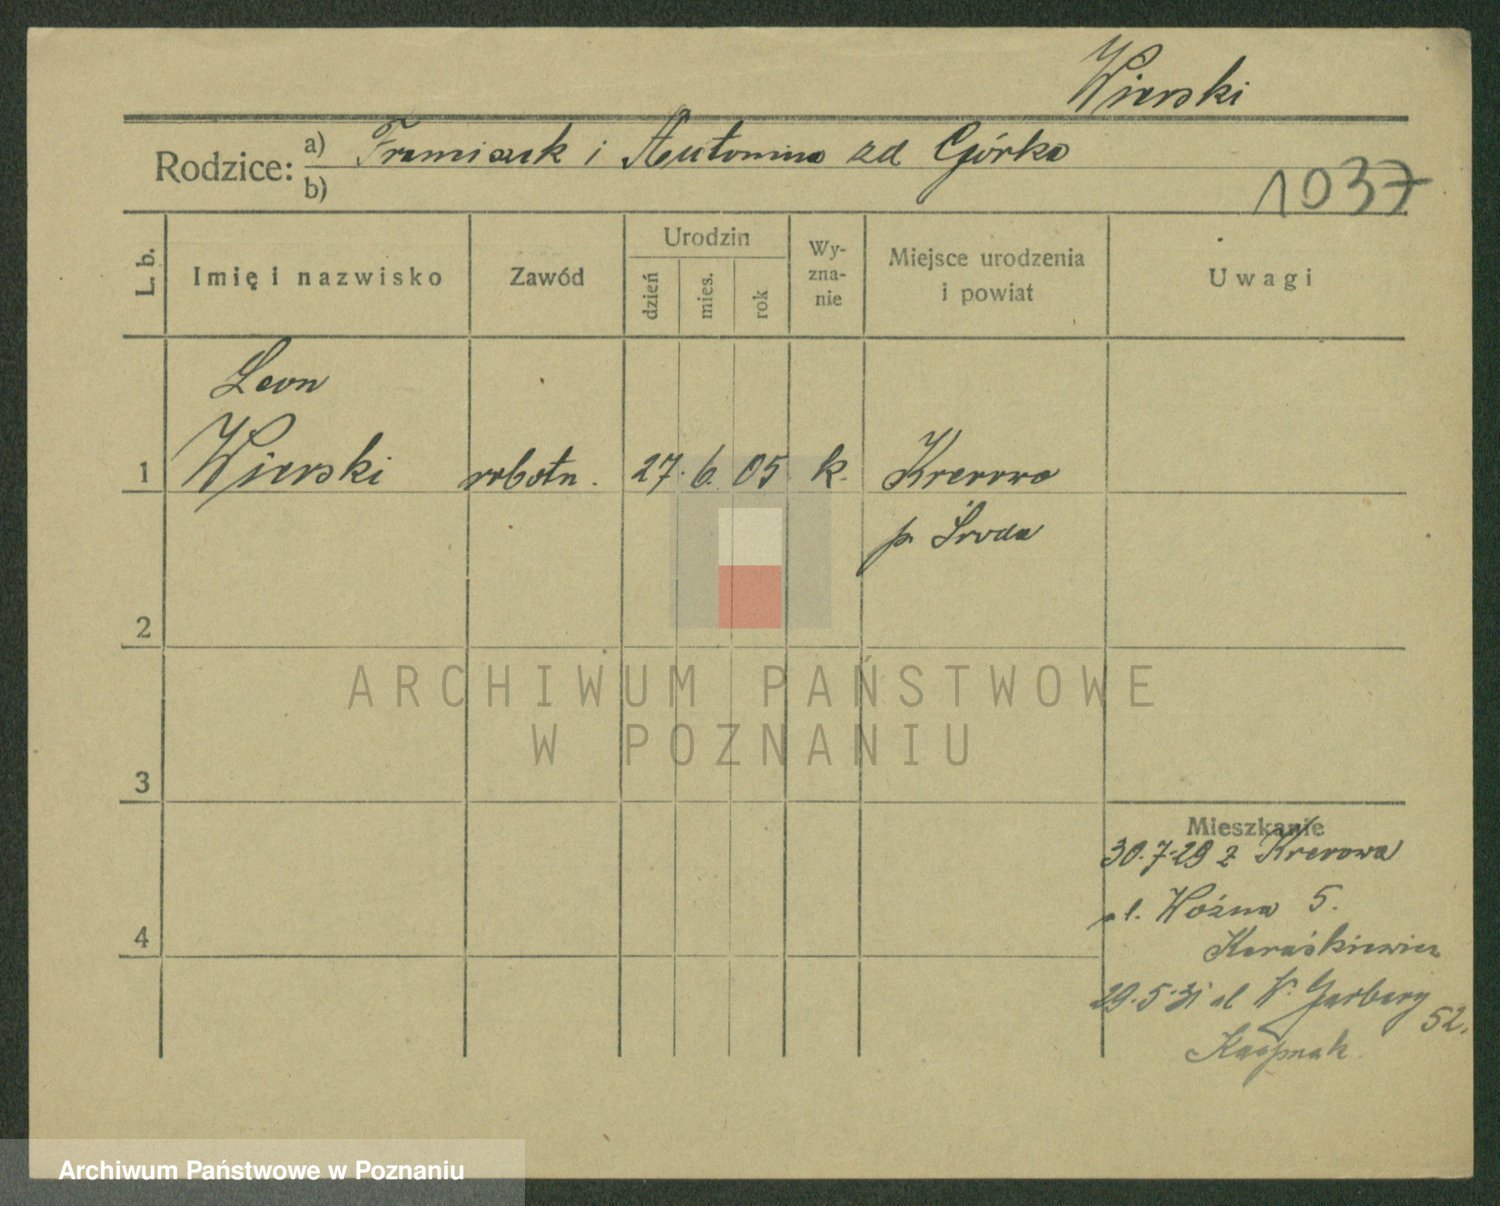 Wierski
Rodzice: a) Franciszek i Antonina zd Górka
b)
1037
L. b.
Imię i nazwisko
Zawód
Urodzin
dzień
mies.
rok
Wy-
zna-
nie
Miejsce urodzenia
i powiat
Uwagi
Leon
1 Wierski robotn. 27. 6. 05 k. Krerowo
p. Środa
2
ARCHIWUM PAŃSTWOWE
W POZNANIU
3
Mieszkanie
30.7.29 z Krerowa
4
ul. Woźna 5.
Karaśkiewicz
29.5.31 ul W. Garbary
52.
Kaspnak
Archiwum Państwowe w Poznaniu